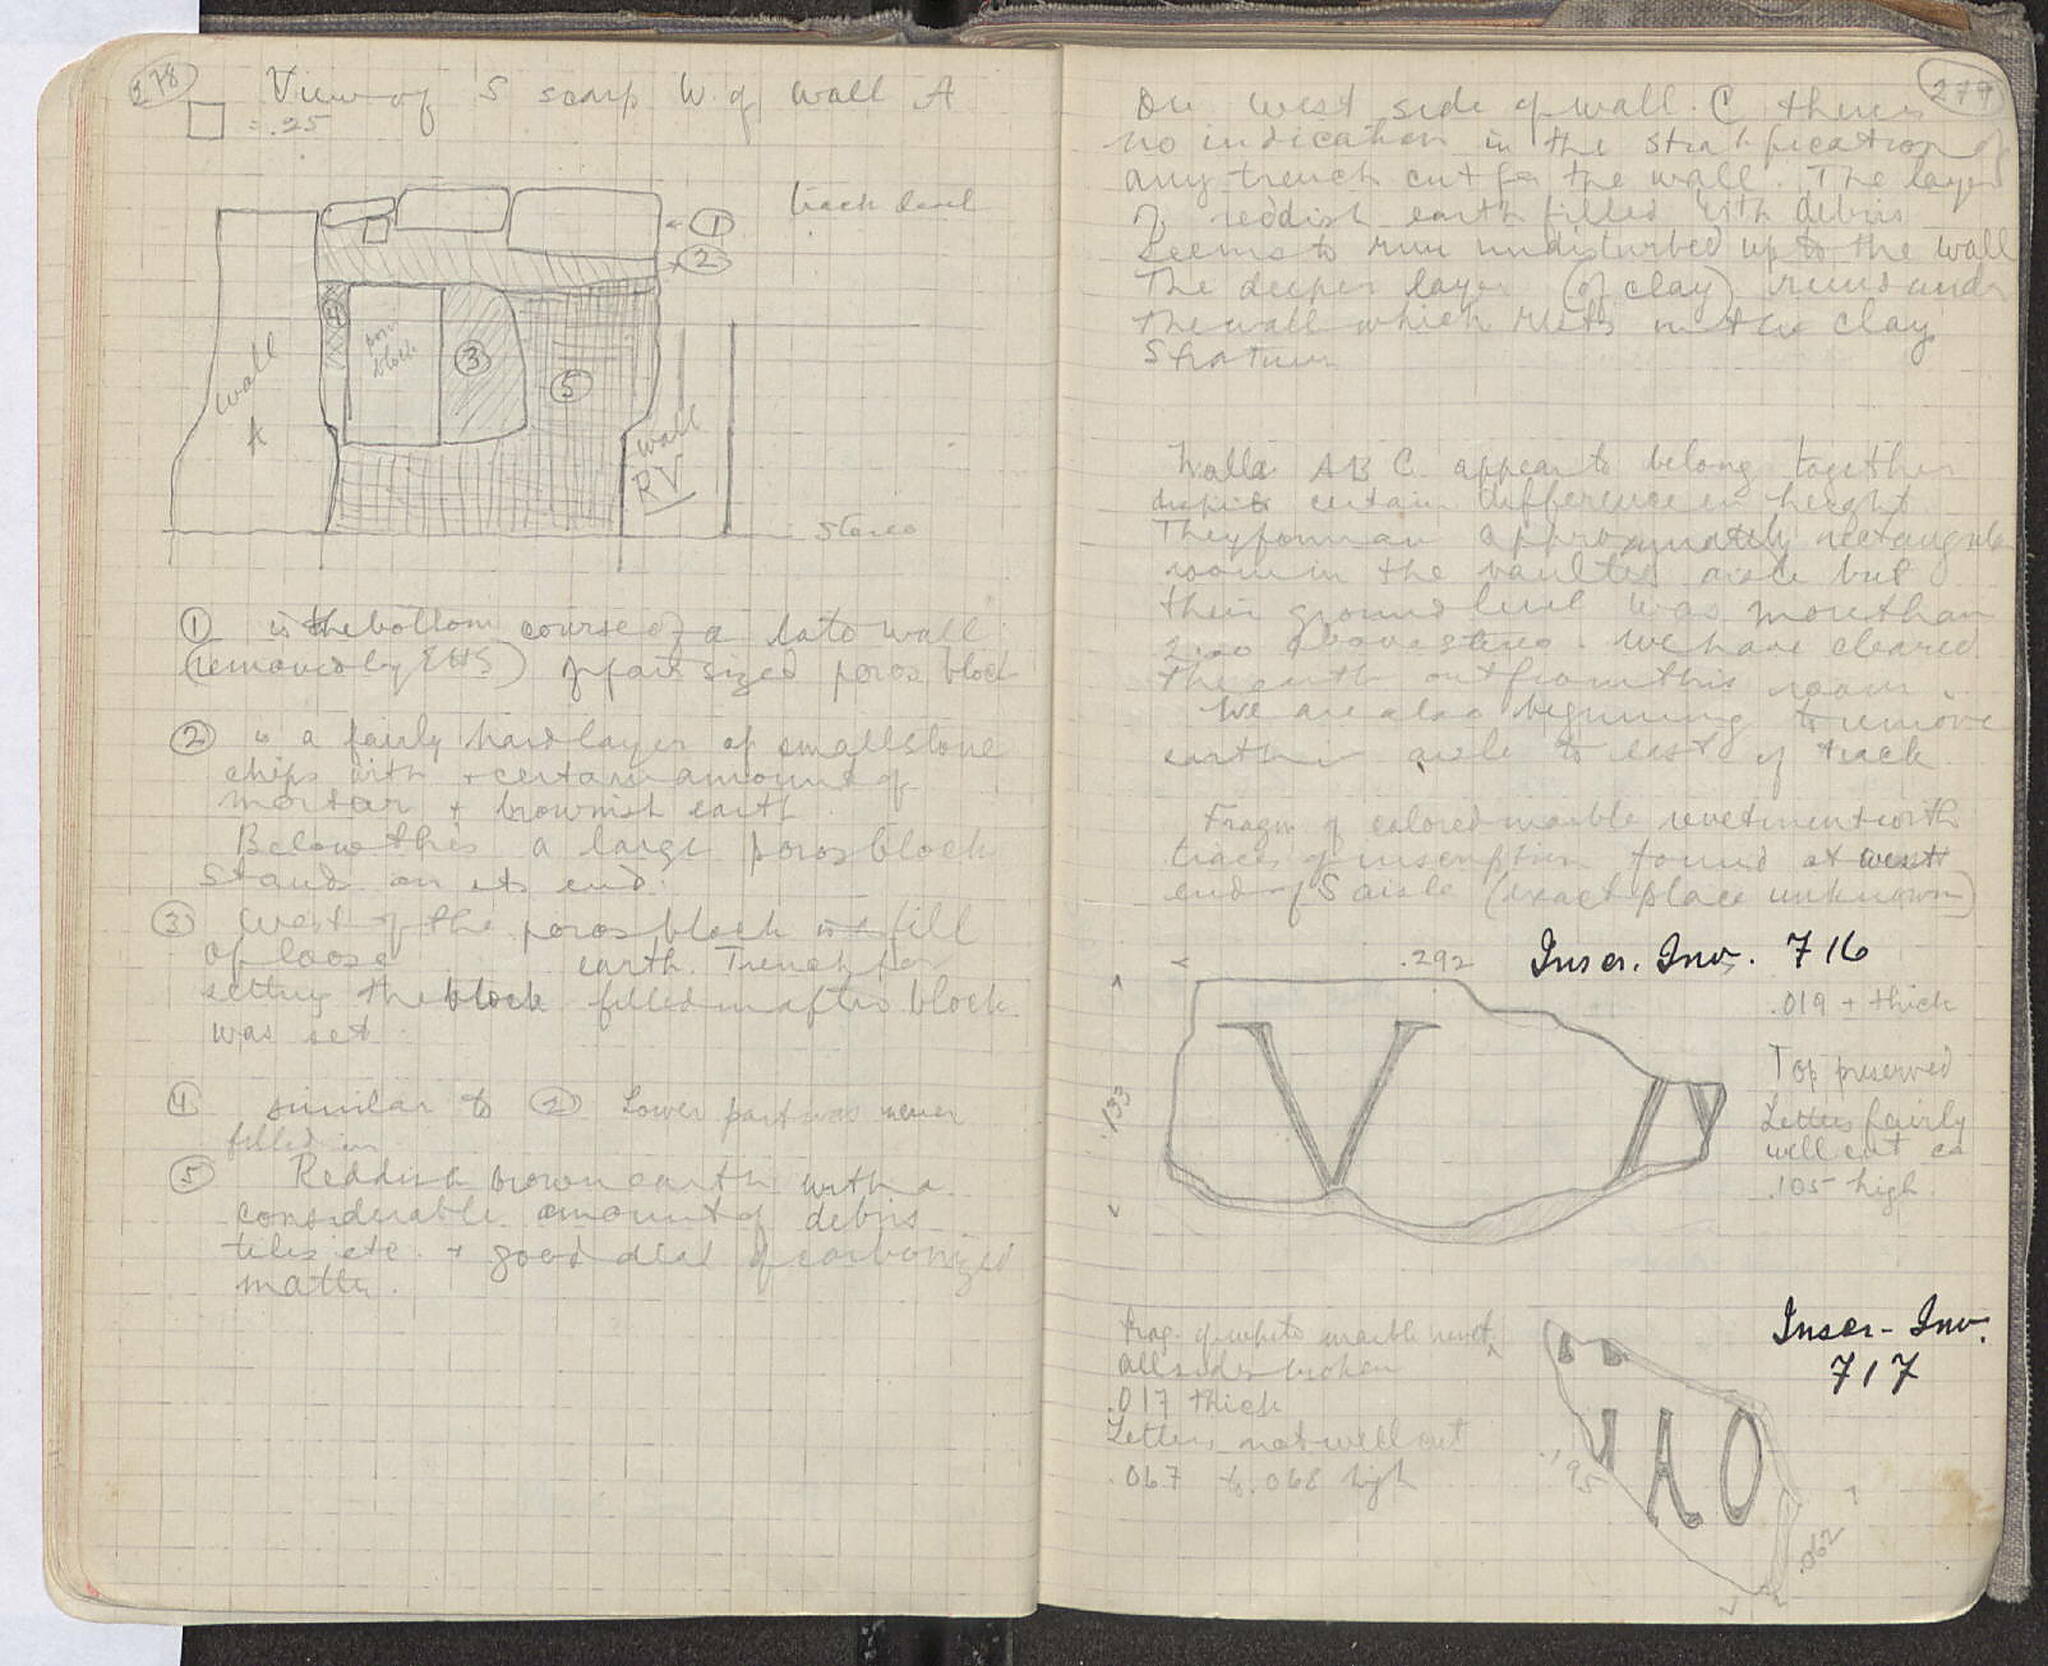 278
View of S scarp W. of wall A
= .25
track level
1
2
4
poros block
3
5
wall A
wall RV
Stereo
① is the bottom course of a late wall
(removed by EHS) of fair sized poros block
② is a fairly hard layer of small stone
chips with a certain amount of
mortar + brownish earth
Below this a large poros block
stands on its end.
③ West of the poros block is fill
of loose earth. Trench for
setting the block filled in after block
was set.
④ similar to ② Lower part was never
filled in
⑤ Reddish brown earth with a
considerable amount of debris
tiles etc. + good deal of carbonized
matter.
279
On west side of wall C there is
no indication in the stratification of
any trench cut for the wall. The layer
of reddish earth filled with debris
seems to run undisturbed up to the wall
The deeper layer (of clay) runs under
the wall which rests in the clay
stratum
Walls A B C appear to belong together
despite certain difference in height
They form an approximately rectangular
room in the vaulted aisle but
their ground level was more than
2.00 above stereo. We have cleared
the earth out from this room.
We are also beginning to remove
earth in aisle to east of track
Fragm of colored marble revetment with
traces of inscription found at west
end of S aisle (exact place unknown)
.292 Inscr. Inv. 716
.019 + thick
.133
V
Top preserved
Letters fairly
well cut ca
.105 high
Frag. of white marble revet.
all sides broken
.017 thick
Letters not well cut
.067 to .068 high
Inscr- Inv.
717
.195
.062